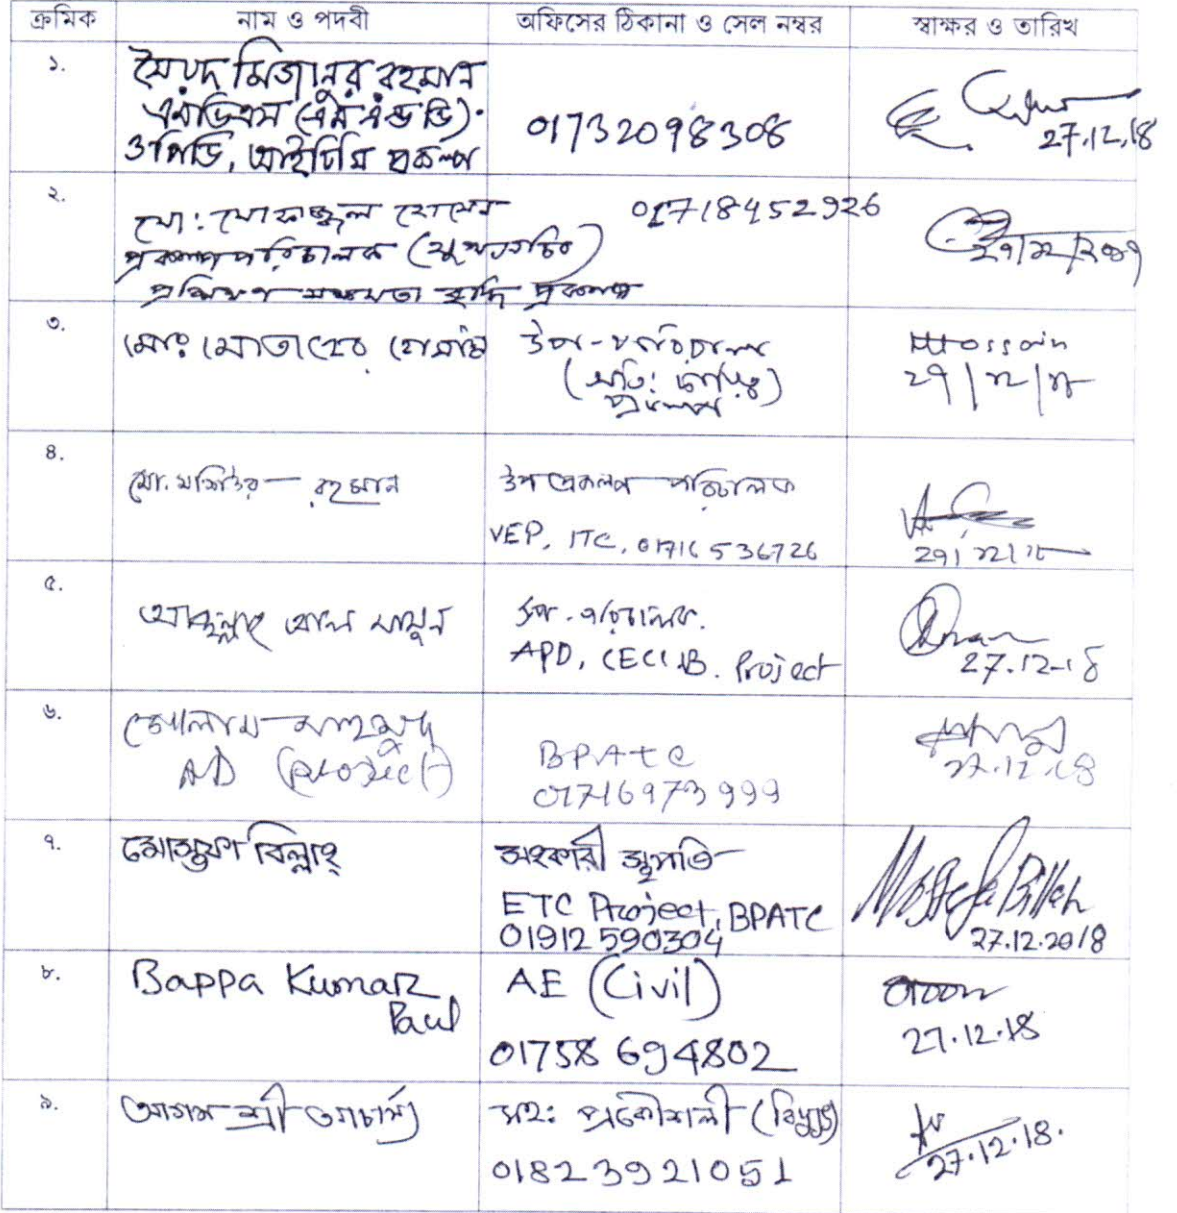 ক্রমিক নাম ও পদবী অফিসের ঠিকানা ও সেল নম্বর স্বাক্ষর ও তারিখ
১.
সৈয়দ মিজানুর রহমান
এমডিএস (এম এন্ড ডি)
ও পিডি, আইটিসি প্রকল্প
01732098308
27.12.18
২.
মো: মোফাজ্জল হোসেন
প্রকল্প পরিচালক (যুগ্মসচিব)
প্রশিক্ষণ সক্ষমতা বৃদ্ধি প্রকল্প
01718452926
৩.
মোঃ মোতাহের হোসেন
উপ-পরিচালক
প্রকল্প
Hossain
৪.
মো. মশিউর রহমান
উপ প্রকল্প পরিচালক
VEP, ITC, 01716 536726
৫.
আব্দুল্লাহ আল মামুন
উপ-পরিচালক.
APD, Project
27.12-18
৬.
গোলাম মাহমুদ
AD (Project)
BPATC
01716973999
27.12.18
৭.
মোস্তফা বিল্লাহ্
সহকারী স্থপতি
ETC Project, BPATC
01912590304
Mostofa Billah
27.12.2018
৮.
Bappa Kumar
Paul
AE (Civil)
01758 694802
27.12.18
৯.
শ্রী
সহ: প্রকৌশলী (বিদ্যুৎ)
01823921051
27.12.18.